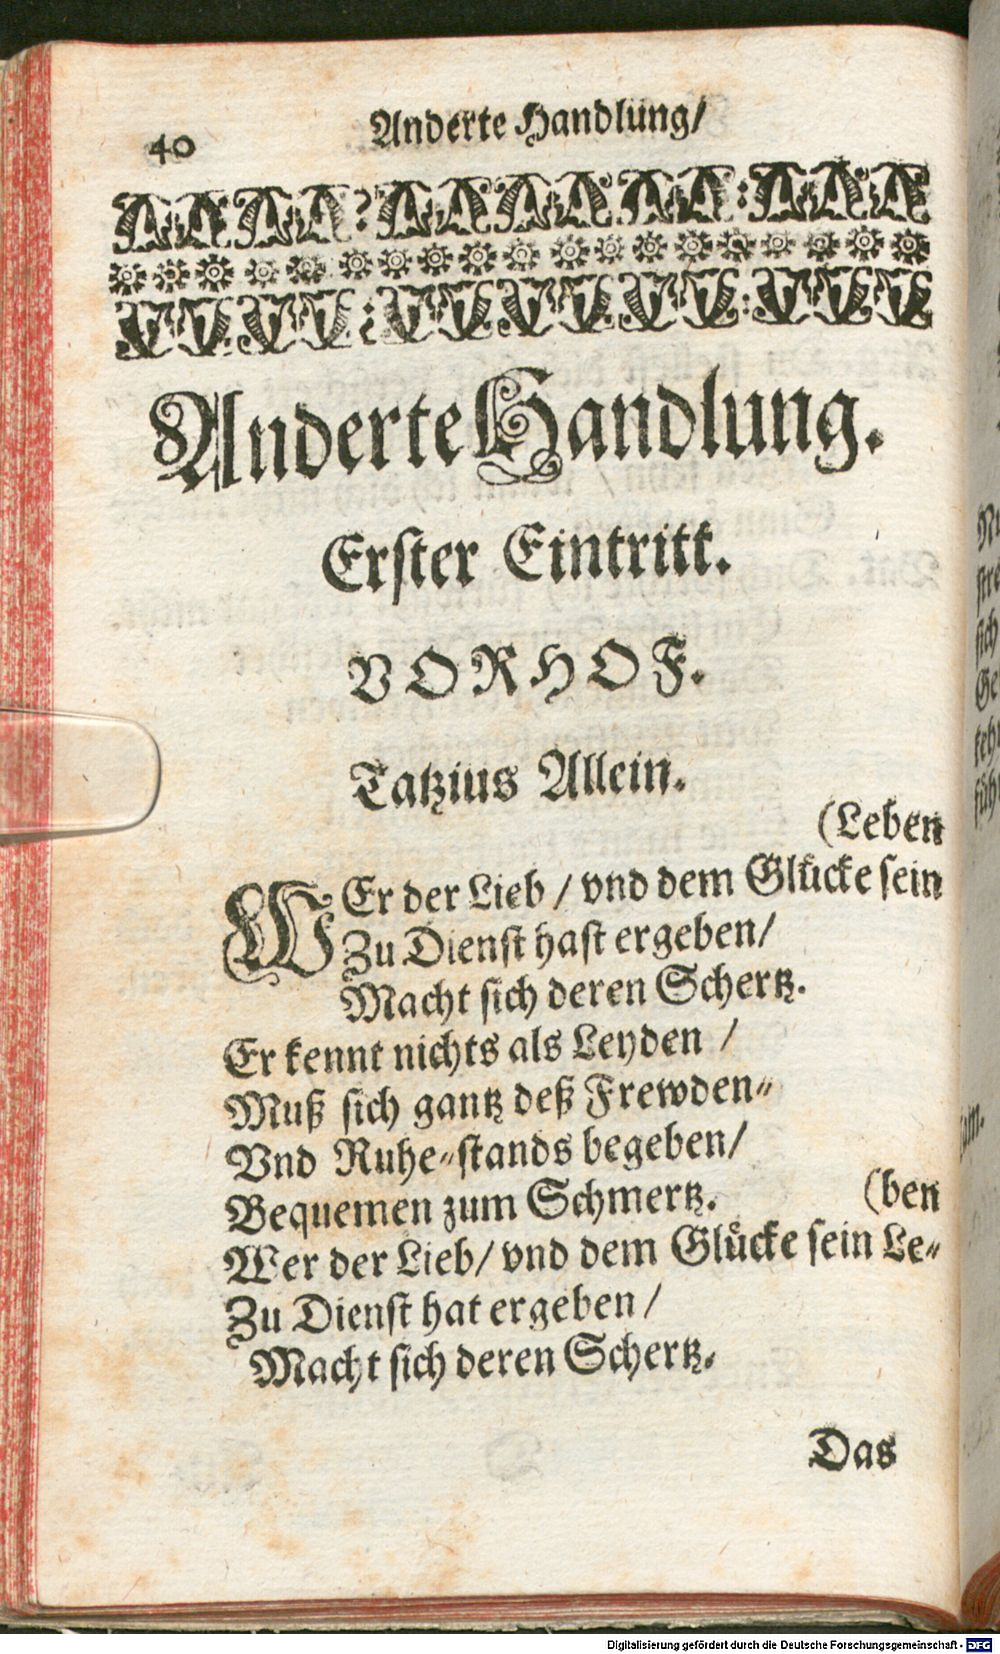 40
Anderte Handlung/
Anderte Handlung.
Erster Eintritt.
VORHOF.
Tatzius Allein.
(Leben
WEr der Lieb / vnd dem Glücke sein
Zu Dienst hast ergeben/
Macht sich deren Schertz.
Er kennt nichts als Leyden /
Muß sich gantz deß Frewden-
Vnd Ruhe-stands begeben/
Bequemen zum Schmertz.
(ben
Wer der Lieb/ vnd dem Glücke sein Le-
Zu Dienst hat ergeben /
Macht sich deren Schertz.
Das
Digitalisierung gefördert durch die Deutsche Forschungsgemeinschaft - DFG